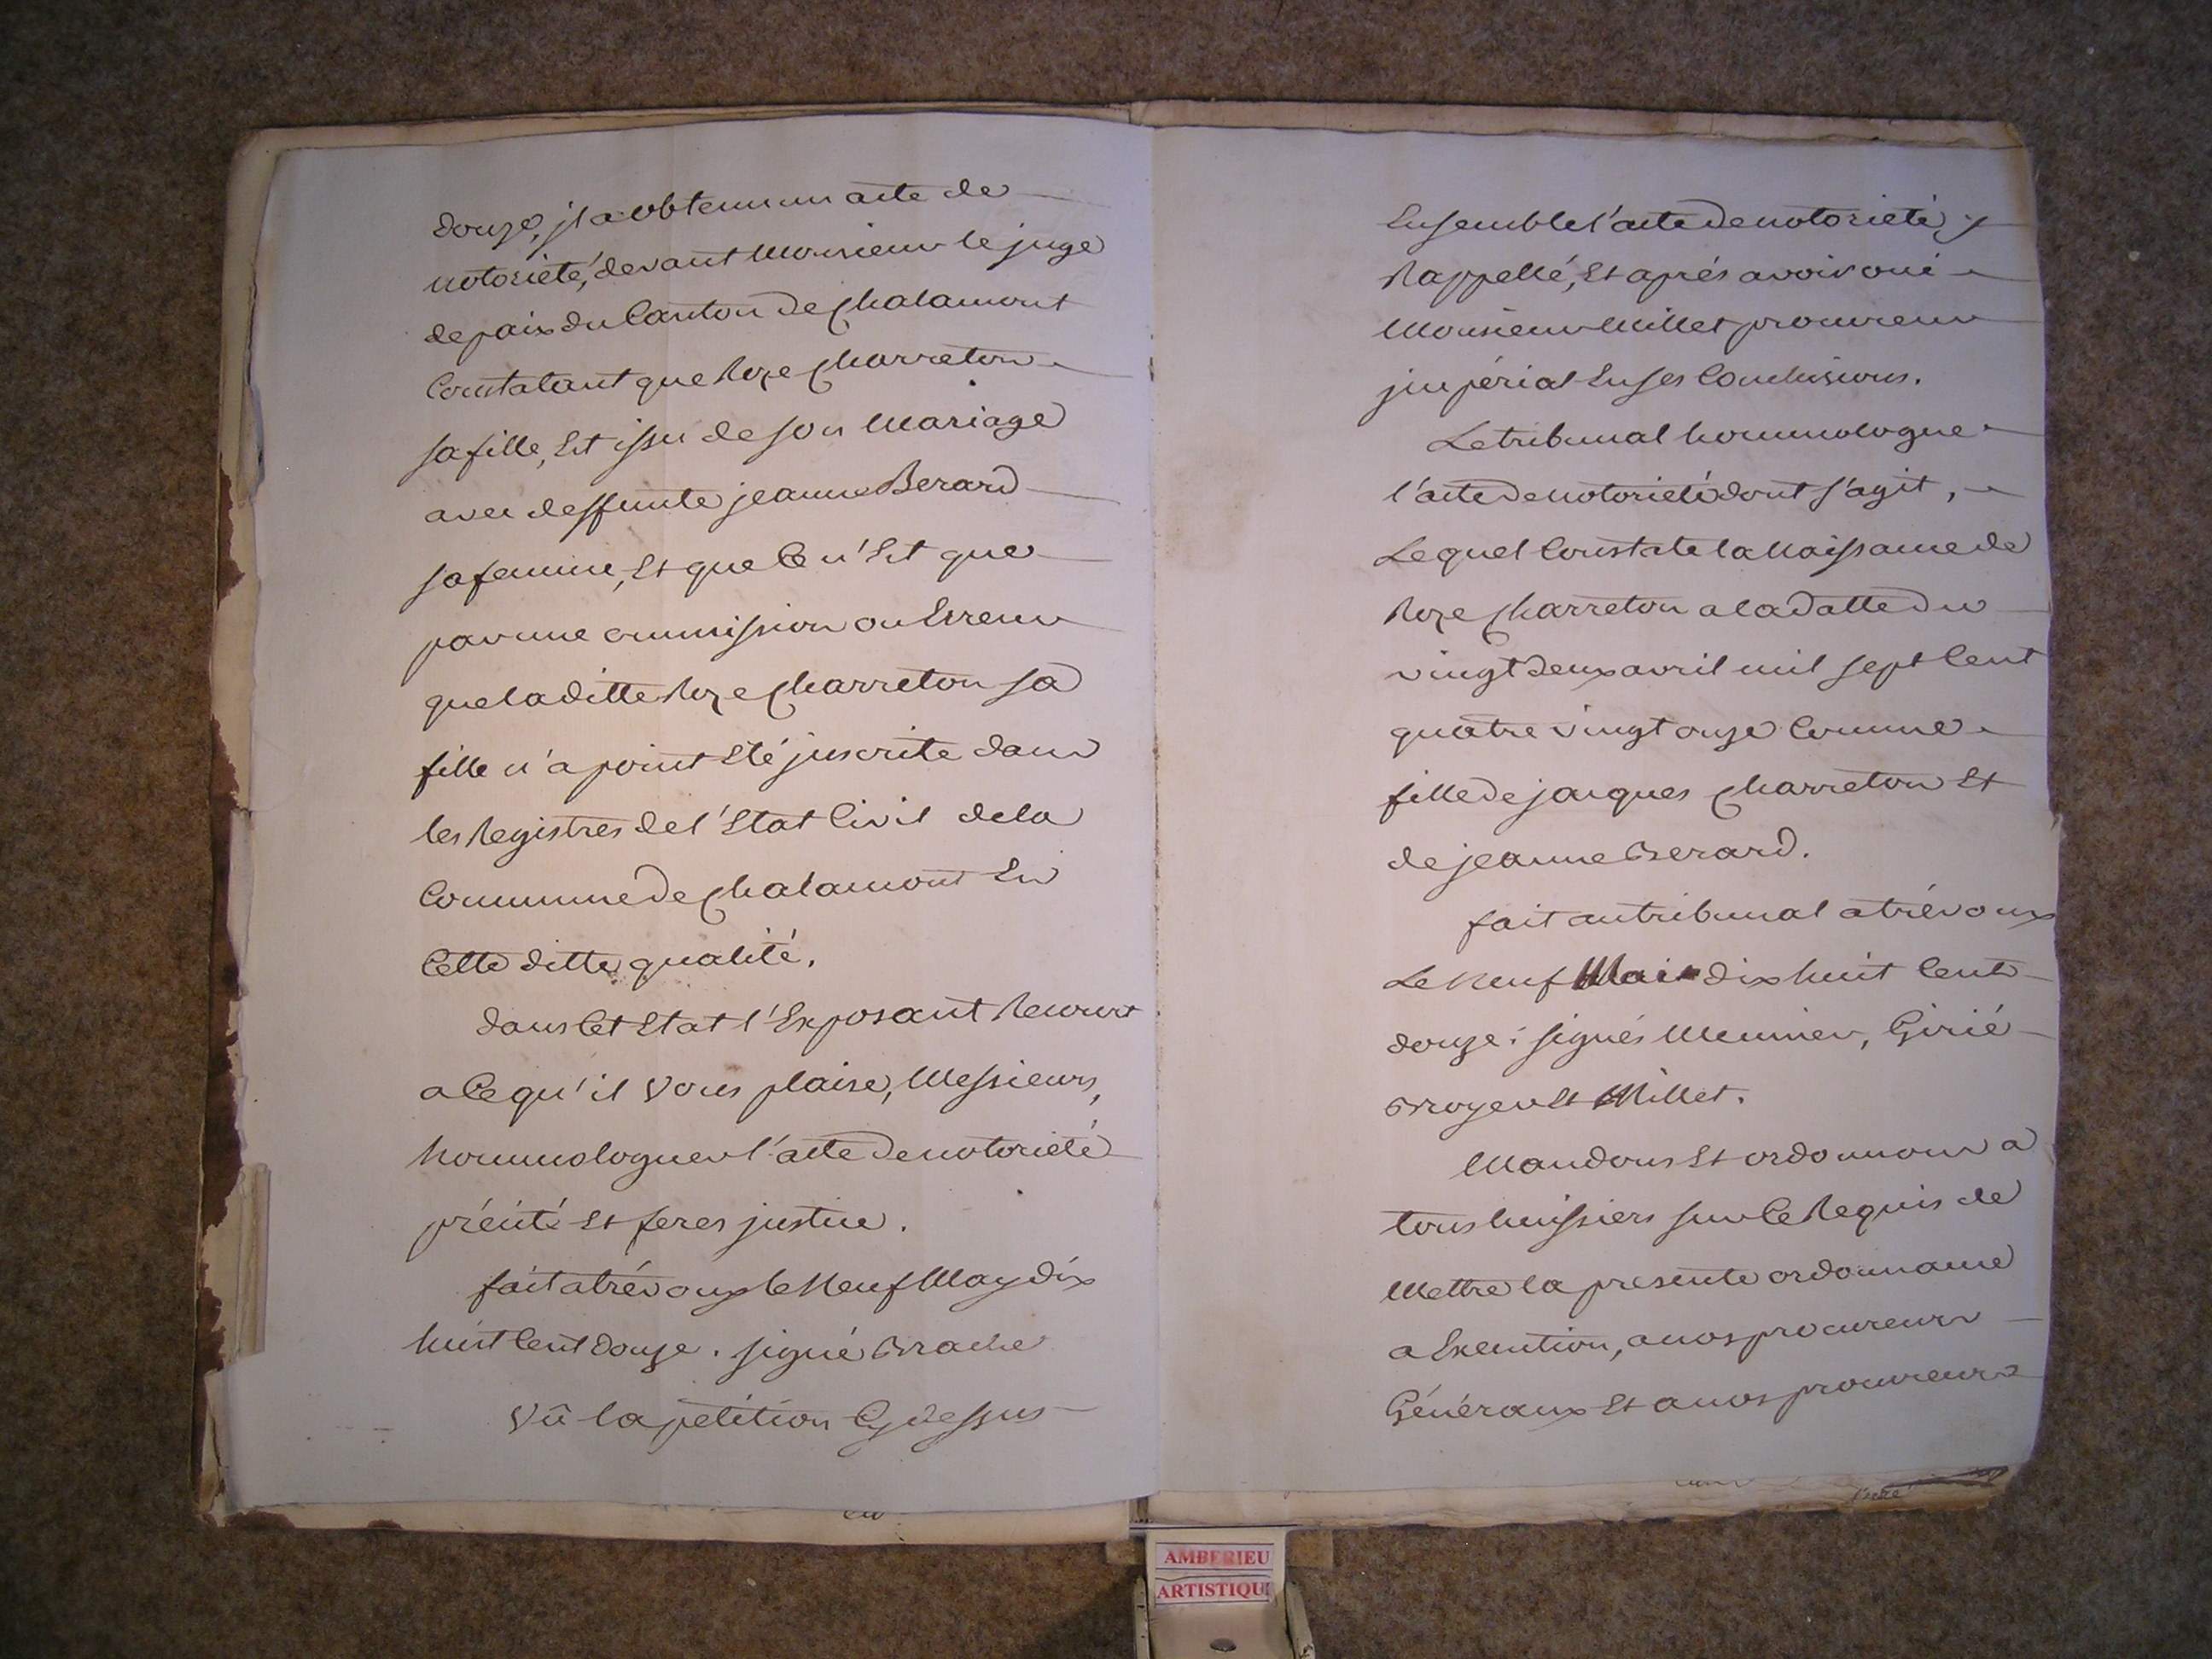 douze, jl a obtenu un acte de
notorieté, devant Monsieur le juge
de paix du Canton de Chalamont
Constatant que Roze Charreton
sa fille, Est issu de son Mariage
avec deffunte jeanne Berard
sa femme, Et que Ce n'Est que
par une ommission ou Erreur
que la ditte Roze Charreton sa
fille n'a point Eté jnscrite dans
les Registres de l'Etat Civil de la
Commune de Chalamont En
Cette ditte qualité.
dans Cet Etat l'Exposant Recourt
a Ce qu'il Vous plaise, Messieurs,
hommologuer l'acte de notorieté
précité Et feres justice.
fait a trévoux le Neuf May dix
huit Cent douze. signé Brache
Vû la pétition Cy dessus
Ensemble l'acte de notorieté y
Rappellé, Et aprés avoir oui
Monsieur Millet procureur
jmpérial En ses Conclusions.
Le tribunal hommologue
l'acte de notorieté dont s'agit,
Le quel Constate la Naissance de
Roze Charreton a la datte du
vingt deux avril mil sept Cent
quatre vingt onze Comme
fille de jacques Charreton Et
de jeanne Berard.
fait au tribunal a trévoux
Le Neuf Mai dix huit Cent
douze: signés Meunier, Girié
Broyer Et Millet.
Mandons Et ordonnons a
tous huissiers sur Ce Requis de
Mettre la presente ordonnance
a Execution, a nos procureurs
Généraux Et a nos procureurs
AMBERIEU
ARTISTIQUE